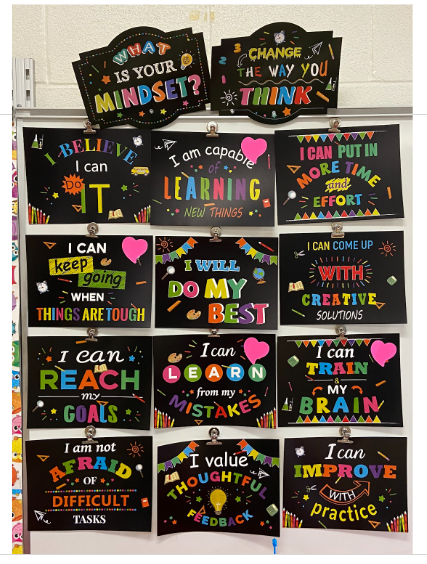 WHAT
IS YOUR
MINDSET?
CHANGE
THE WAY YOU
THINK
I BELIEVE
I can
DO
IT
I am capable
of
LEARNING
NEW THINGS
I CAN PUT IN
MORE TIME
and
EFFORT
I CAN
keep
going
WHEN
THINGS ARE TOUGH
I WILL
DO MY
BEST
I CAN COME UP
WITH
CREATIVE
SOLUTIONS
I can
REACH
my
GOALS
I can
LEARN
from my
MISTAKES
I can
TRAIN
MY
BRAIN
I am not
AFRAID
OF
DIFFICULT
TASKS
I value
THOUGHTFUL
FEEDBACK
I can
IMPROVE
WITH
practice